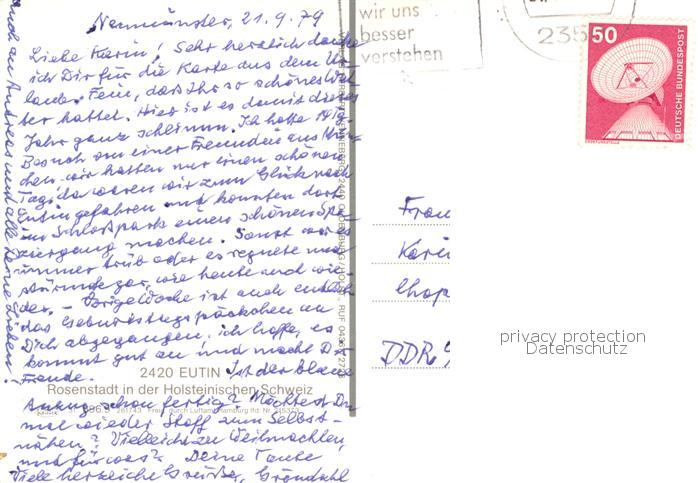 Neumünster, 21.9.79
Liebe Karin! Sehr herzlich danke
ich Dir für die Karte aus dem Ur-
laub. Fein, daß Ihr so schönes Wet
ter hattet. Hier ist es damit dieses
Jahr ganz schlimm. Ich hatte 14 Tg.
Besuch von einer Freundin aus Mün-
chen wir hatten nur einen schönen
Tag, da waren wir zum Glück nach
Eutin gefahren und konnten dort
im Schloßpark einen schönen Spa-
ziergang machen. Sonst war es
immer trüb oder es regnete und
stürmte gar, wie heute auch wie-
der. – Vorige Woche ist auch endlich
das Geburtstagspäckchen an
Dich abgegangen, ich hoffe, es
kommt gut an und macht Dir
Freude. Ist der blaue
2420 EUTIN
Rosenstadt in der Holsteinischen Schweiz
Anzug schon fertig? Möchtest Du
mal wieder Stoff zum Selbst-
nähen? Vielleicht zu Weihnachten,
und für was? Deine Tante
Viele herzliche Grüße,
auch an Andreas und alle Deine Lieben!
wir uns
besser
verstehen
235
50
DEUTSCHE BUNDESPOST
Frau
Karin
DDR
privacy protection
Datenschutz